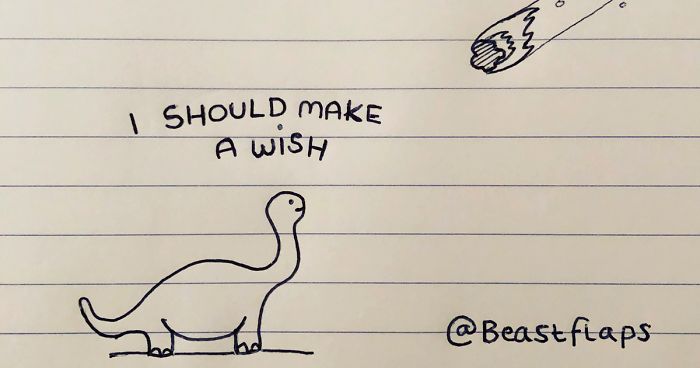 I SHOULD MAKE
A WiSH
@Beastflaps